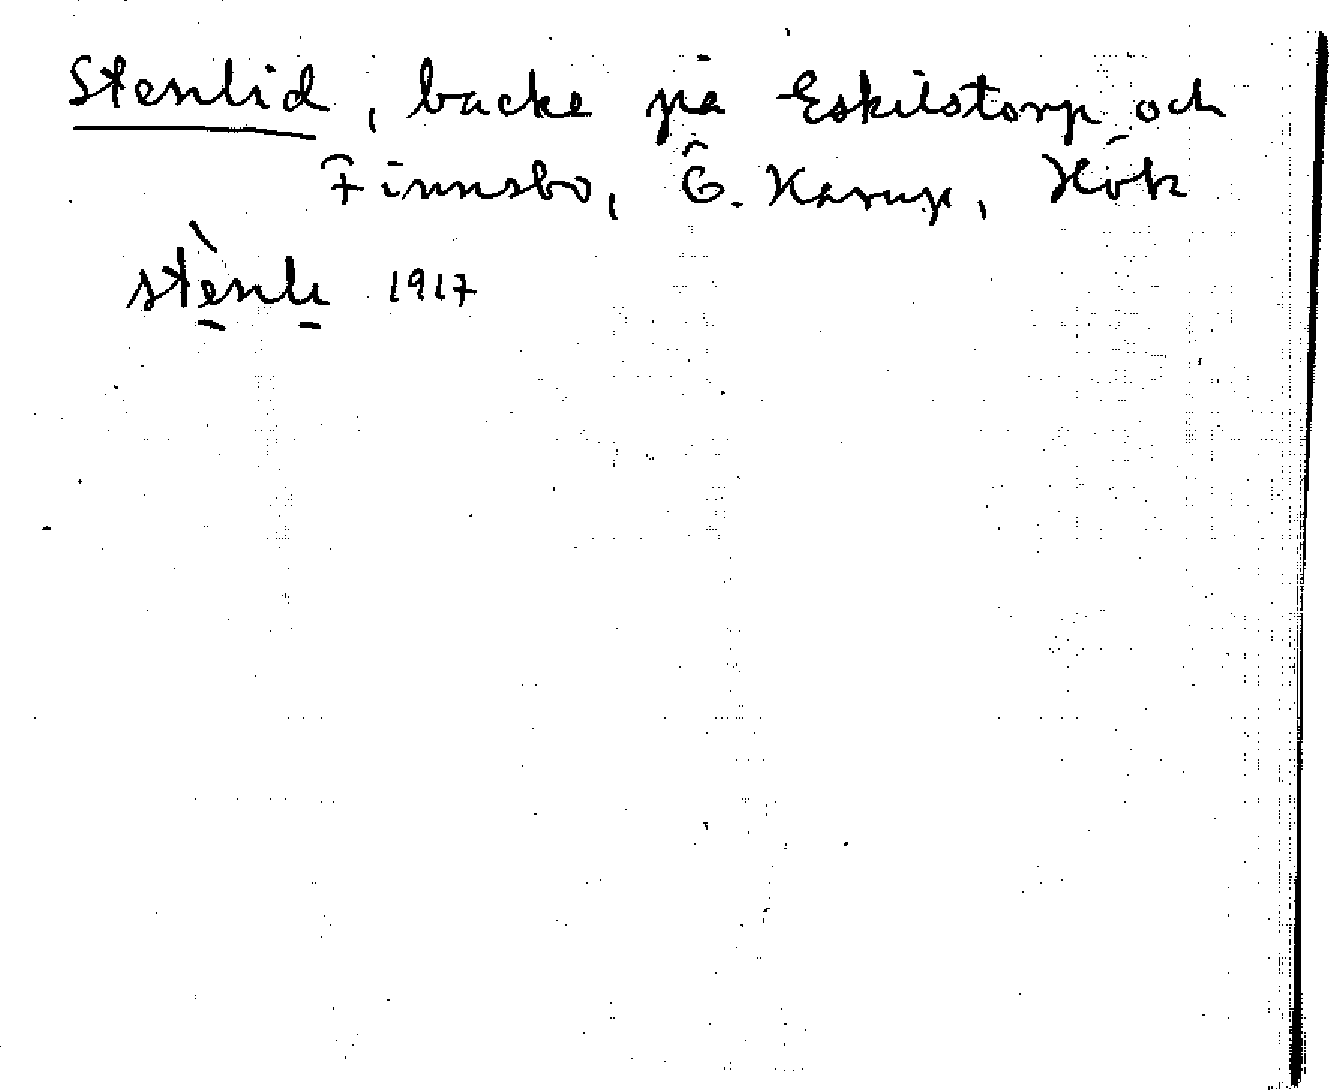 Stenlid, backe på Eskilstorp och
Finnsbo, Ö. Karup, Hök
stènle 1917